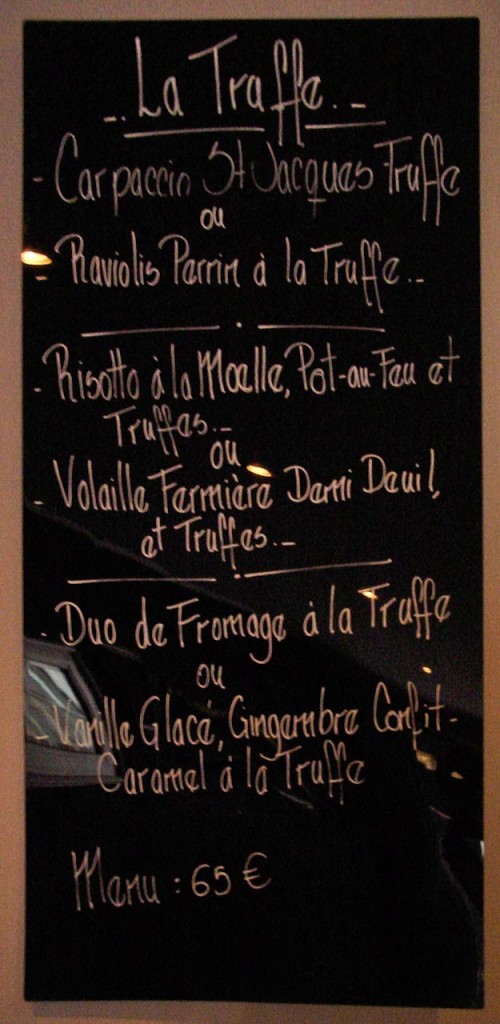 ... La Truffe...
- Carpaccio St Jacques Truffe
ou
- Raviolis Perrin à la Truffe...
- Risotto à la Moelle, Pot-au-Feu et
Truffes...
ou
- Volaille Fermière Demi Deuil,
et Truffes...
- Duo de Fromage à la Truffe
ou
- Vanille Glacé, Gingembre Confit -
Caramel à la Truffe
Menu : 65 €